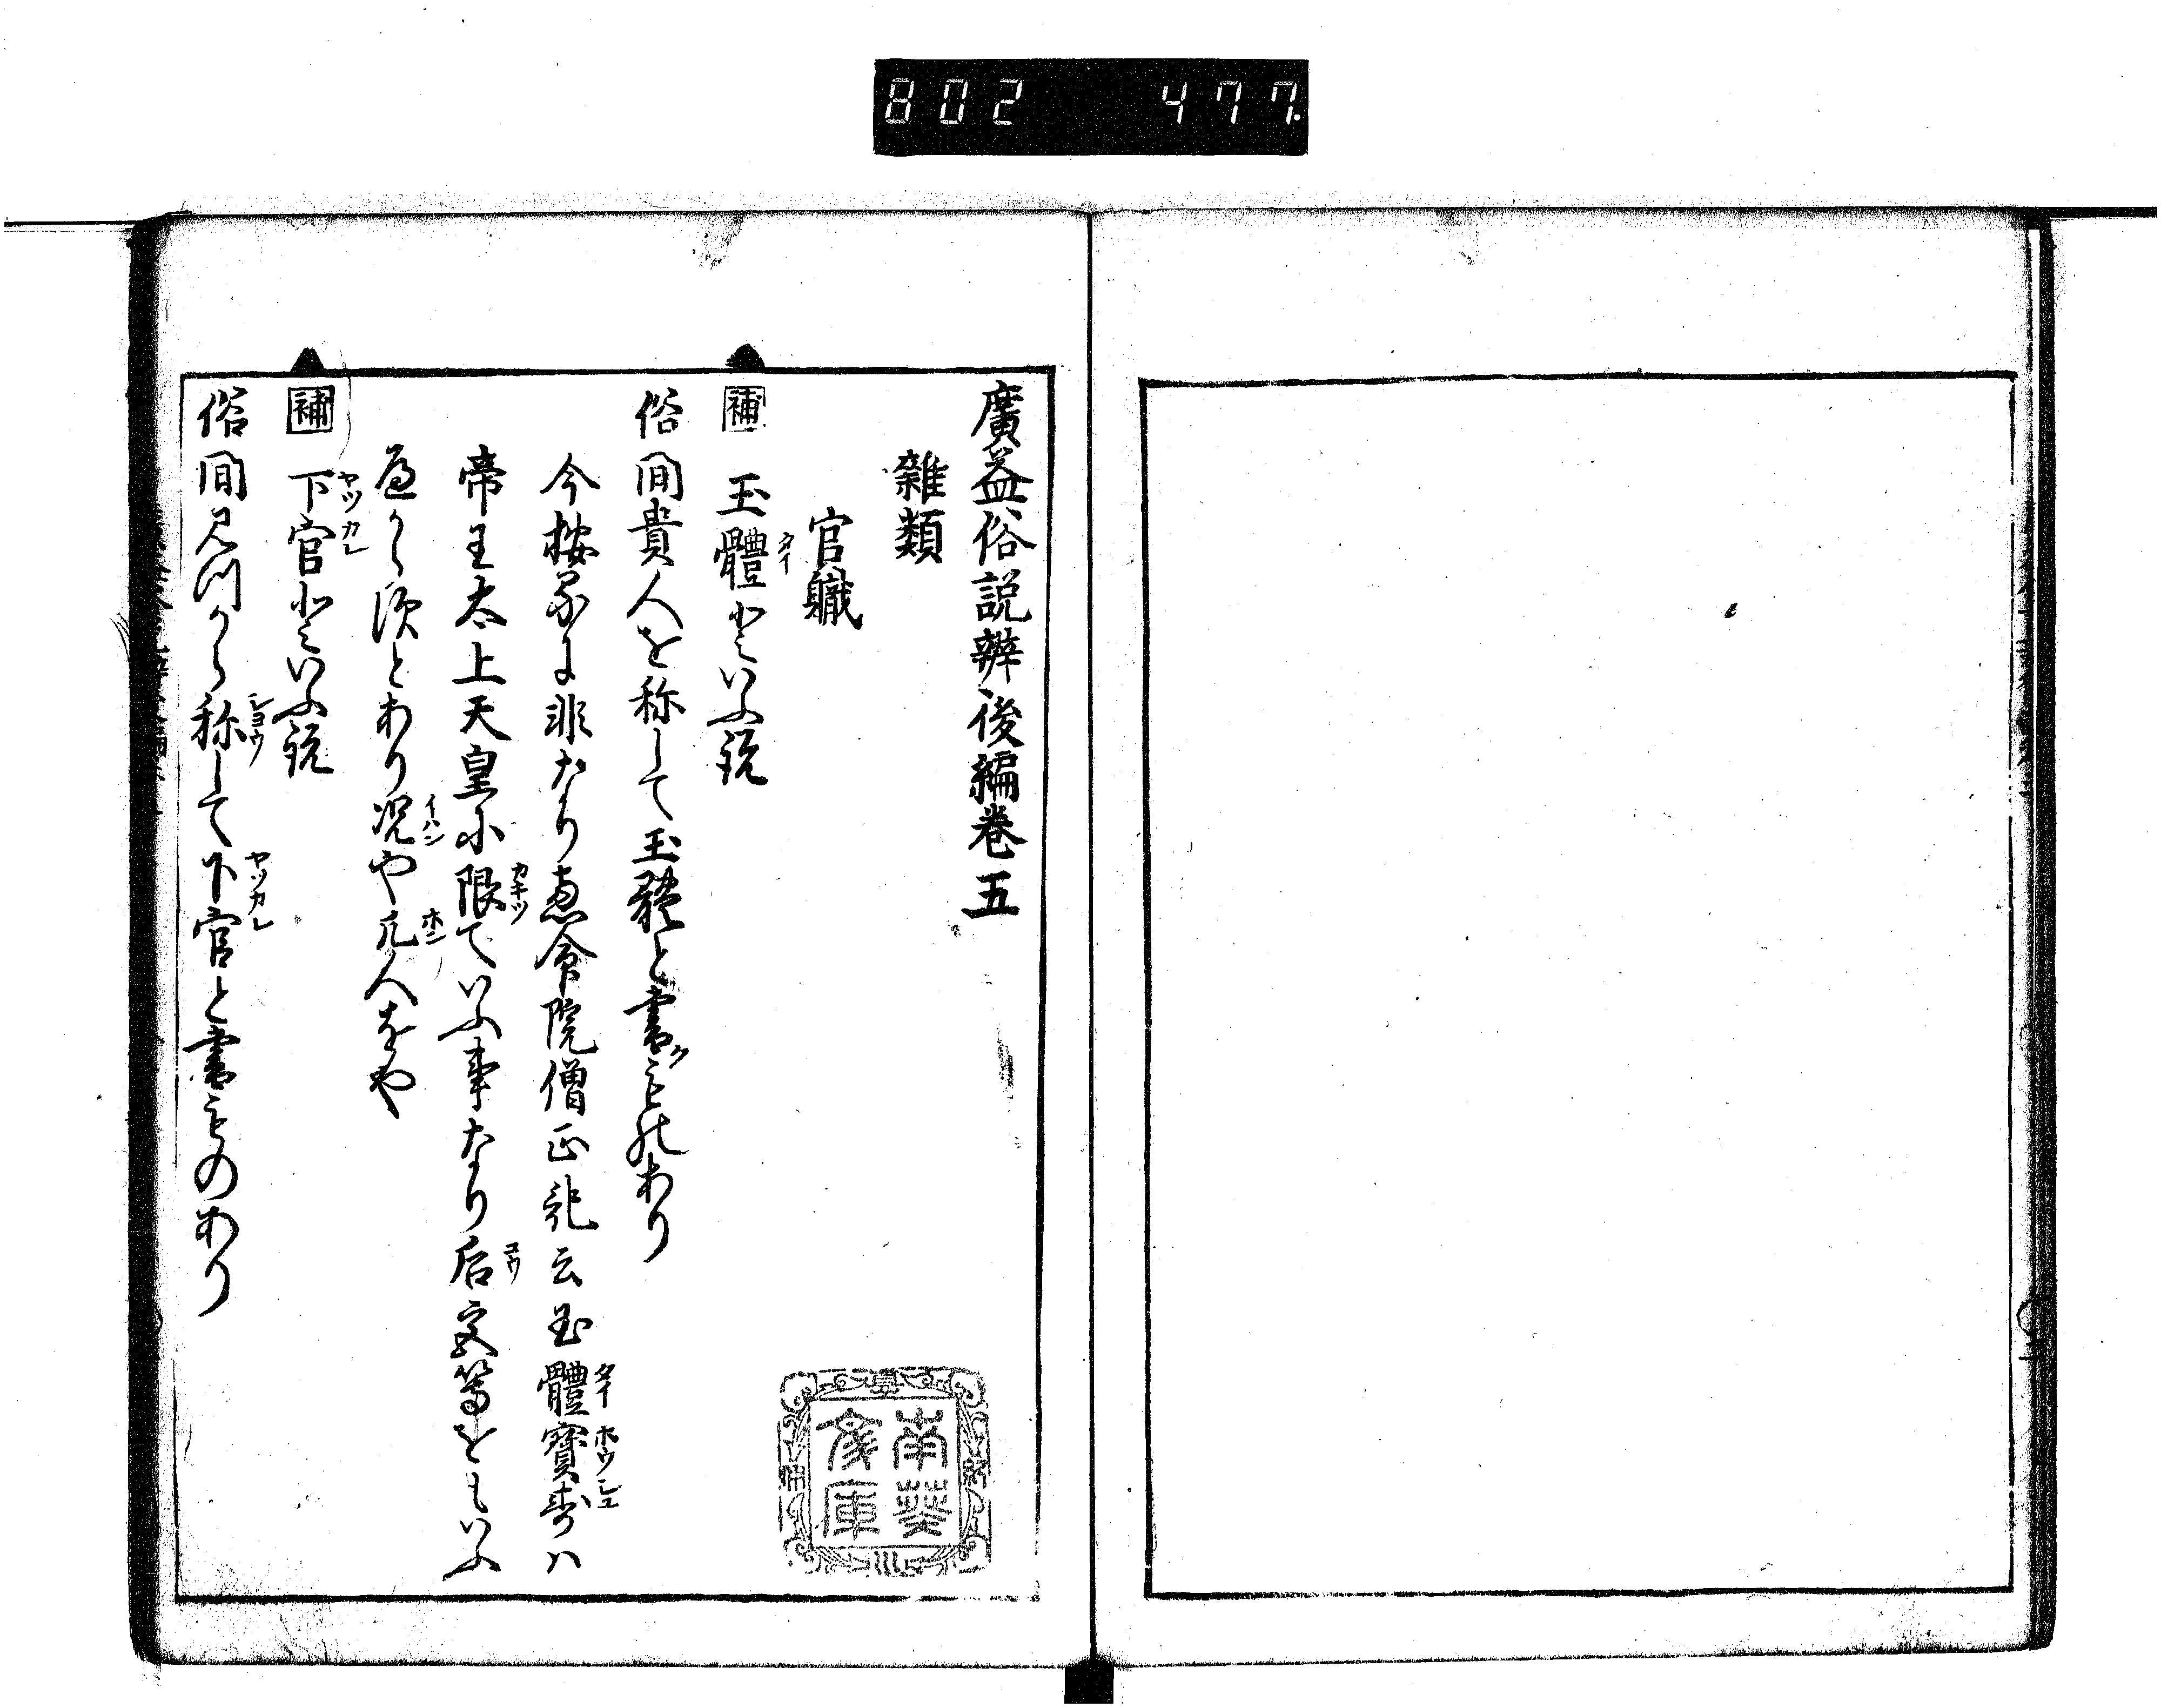 802 477
廣益俗説辨後編巻五
雑類
官職
補 玉體といふ説
俗間貴人を称して玉體と書ものあり
今按るに非なり恵命院僧正記云玉體寶壽ハ
帝王太上天皇に限ていふ事なり后宮等をもいふ
べからずとあり况や凡人をや
補 下官といふ説
俗間みづから称して下官と書ものあり
南葵文庫